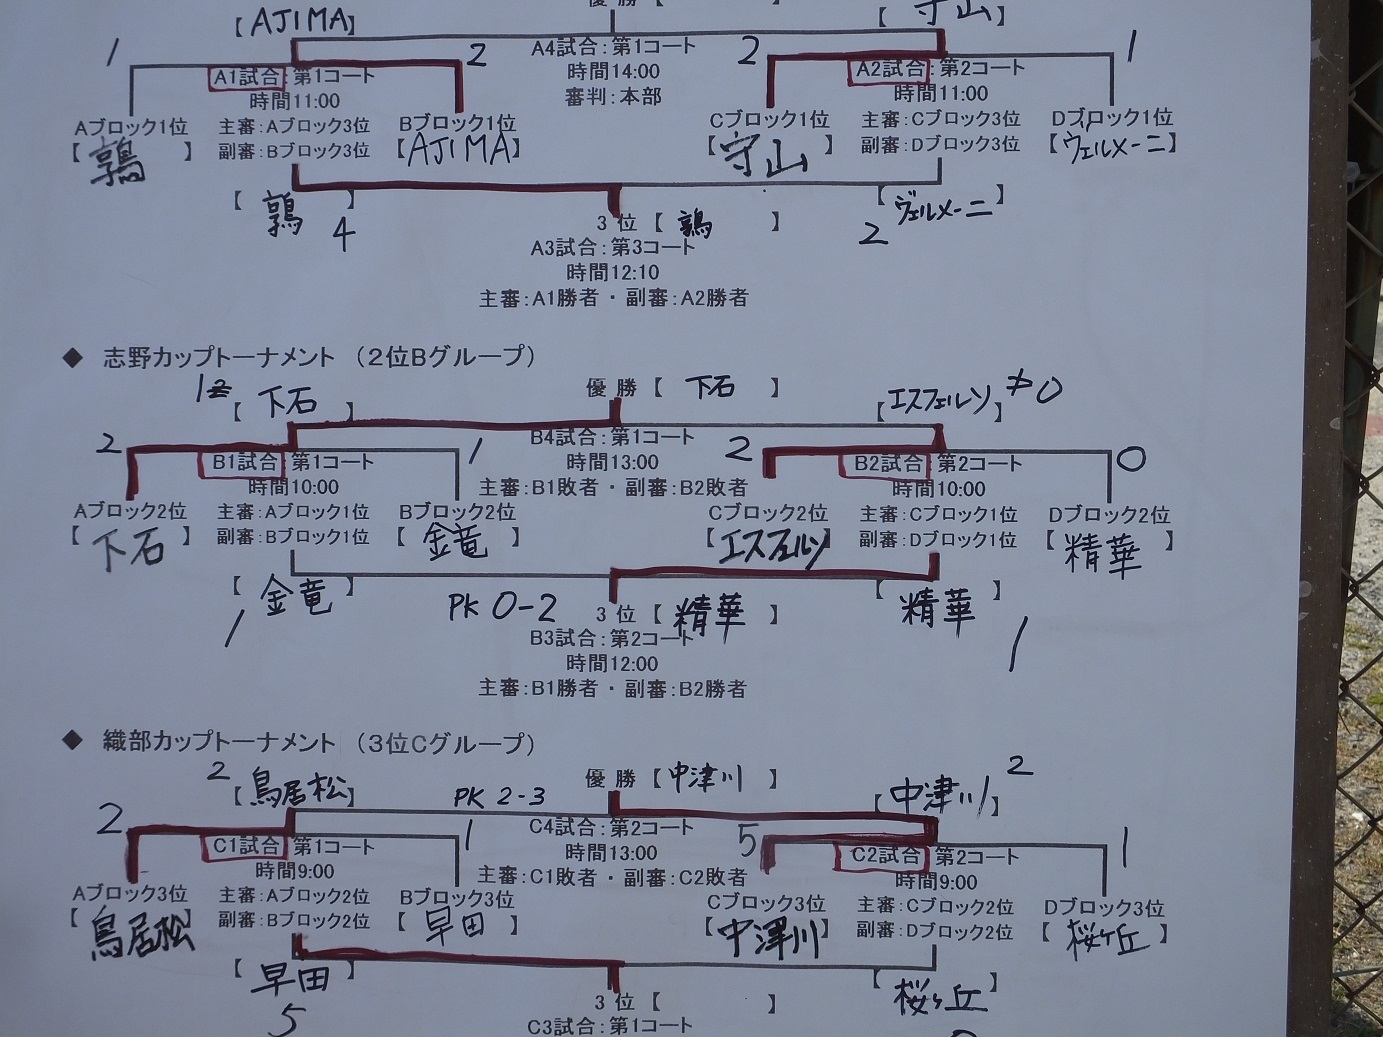 優勝【
【AJIMA】
【守山】
1
2
A4試合:第1コート
2
1
A1試合:第1コート
時間14:00
A2試合:第2コート
時間11:00
審判:本部
時間11:00
Aブロック1位 主審:Aブロック3位 Bブロック1位
Cブロック1位 主審:Cブロック3位 Dブロック1位
【鶉】 副審:Bブロック3位 【AJIMA】
【守山】 副審:Dブロック3位 【ヴェルメーニ】
【鶉】
4
3位【鶉】
2
【ヴェルメーニ】
A3試合:第3コート
時間12:10
主審:A1勝者・副審:A2勝者
◆ 志野カップトーナメント (2位Bグループ)
1
【下石】
優勝【下石】
【エスフェルソ】
0
2
1
B4試合:第1コート
2
0
B1試合:第1コート
時間13:00
B2試合:第2コート
時間10:00
主審:B1敗者・副審:B2敗者
時間10:00
Aブロック2位 主審:Aブロック1位 Bブロック2位
Cブロック2位 主審:Cブロック1位 Dブロック2位
【下石】 副審:Bブロック1位 【金竜】
【エスフェルソ】 副審:Dブロック1位 【精華】
【金竜】
1
PK 0-2
3位【精華】
【精華】
1
B3試合:第2コート
時間12:00
主審:B1勝者・副審:B2勝者
◆ 織部カップトーナメント (3位Cグループ)
2
【鳥居松】
PK 2-3
優勝【中津川】
【中津川】
2
2
1
C4試合:第2コート
5
1
C1試合:第1コート
時間13:00
C2試合:第2コート
時間9:00
主審:C1敗者・副審:C2敗者
時間9:00
Aブロック3位 主審:Aブロック2位 Bブロック3位
Cブロック3位 主審:Cブロック2位 Dブロック3位
【鳥居松】 副審:Bブロック2位 【早田】
【中津川】 副審:Dブロック2位 【桜ヶ丘】
【早田】
5
3位【 】
【桜ヶ丘】
C3試合:第1コート